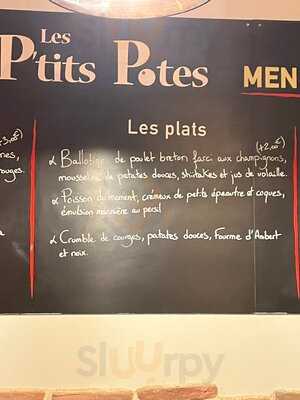 Les
P'tits Potes
MEN
Les plats
+3,00€)
(+2,00€)
nes,
ouges.
α Ballotine de poulet breton farci aux champignons,
mousseline de patates douces, shiitakes et jus de volaille.
α Poisson du moment, crémeux de petits épeautre et coques,
émulsion marinière au persil
α Crumble de courges, patates douces, Fourme d'Ambert
et noix.
Sluurpy